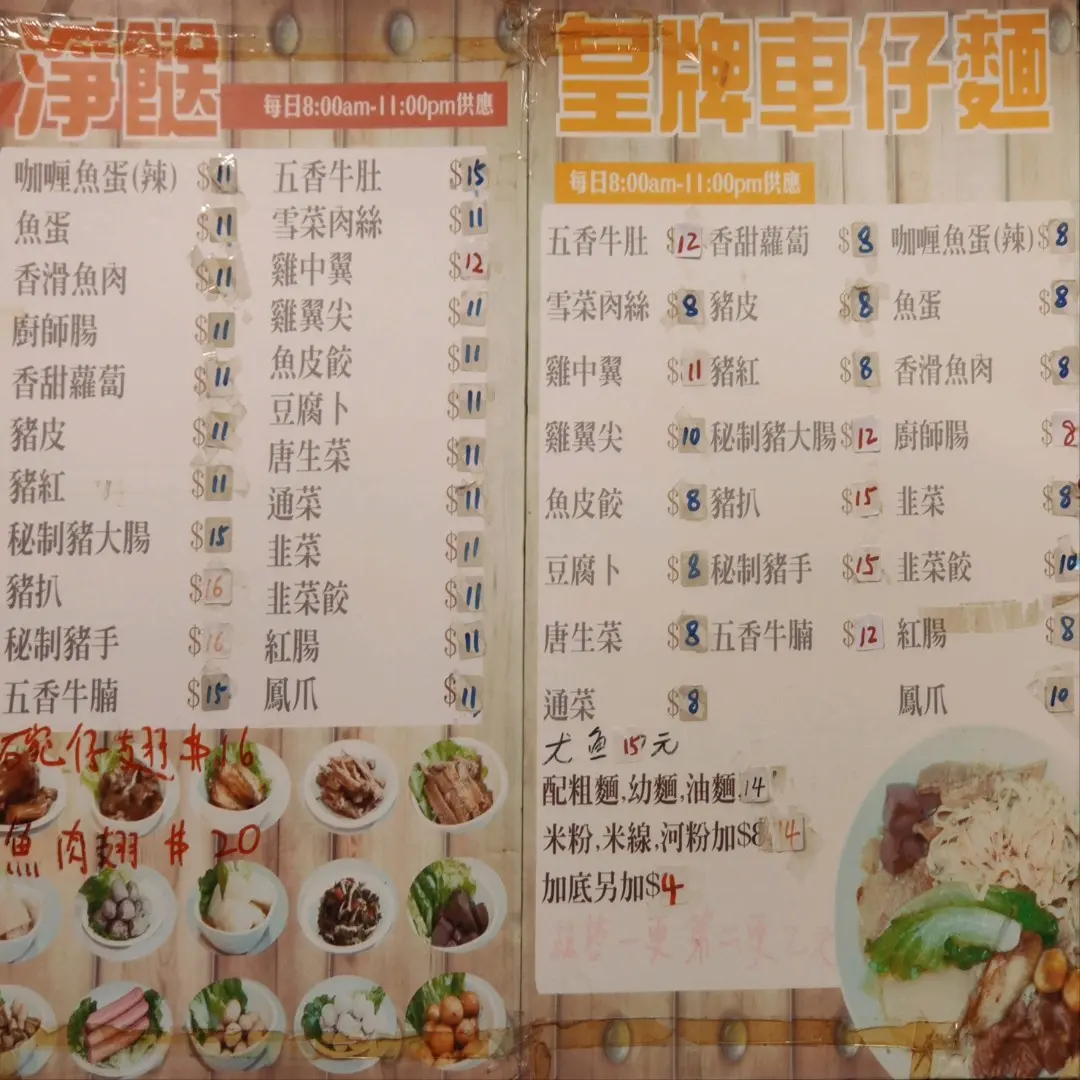 淨餸
每日8:00am-11:00pm供應
咖喱魚蛋(辣) $11
魚蛋 $11
香滑魚肉 $11
廚師腸 $11
香甜蘿蔔 $11
豬皮 $11
豬紅 $11
秘制豬大腸 $15
豬扒 $16
秘制豬手 $16
五香牛腩 $15
五香牛肚 $15
雪菜肉絲 $11
雞中翼 $12
雞翼尖 $11
魚皮餃 $11
豆腐卜 $11
唐生菜 $11
通菜 $11
韭菜 $11
韭菜餃 $11
紅腸 $11
鳳爪 $11
碗仔翅 $16
魚肉翅 $20
皇牌車仔麵
每日8:00am-11:00pm供應
五香牛肚 $12 香甜蘿蔔 $8 咖喱魚蛋(辣) $8
雪菜肉絲 $8 豬皮 $8 魚蛋 $8
雞中翼 $11 豬紅 $8 香滑魚肉 $8
雞翼尖 $10 秘制豬大腸 $12 廚師腸 $8
魚皮餃 $8 豬扒 $15 韭菜 $8
豆腐卜 $8 秘制豬手 $15 韭菜餃 $10
唐生菜 $8 五香牛腩 $12 紅腸 $8
通菜 $8 鳳爪 10
尤魚15元
配粗麵,幼麵,油麵,14
米粉,米線,河粉加$814
加底另加$4